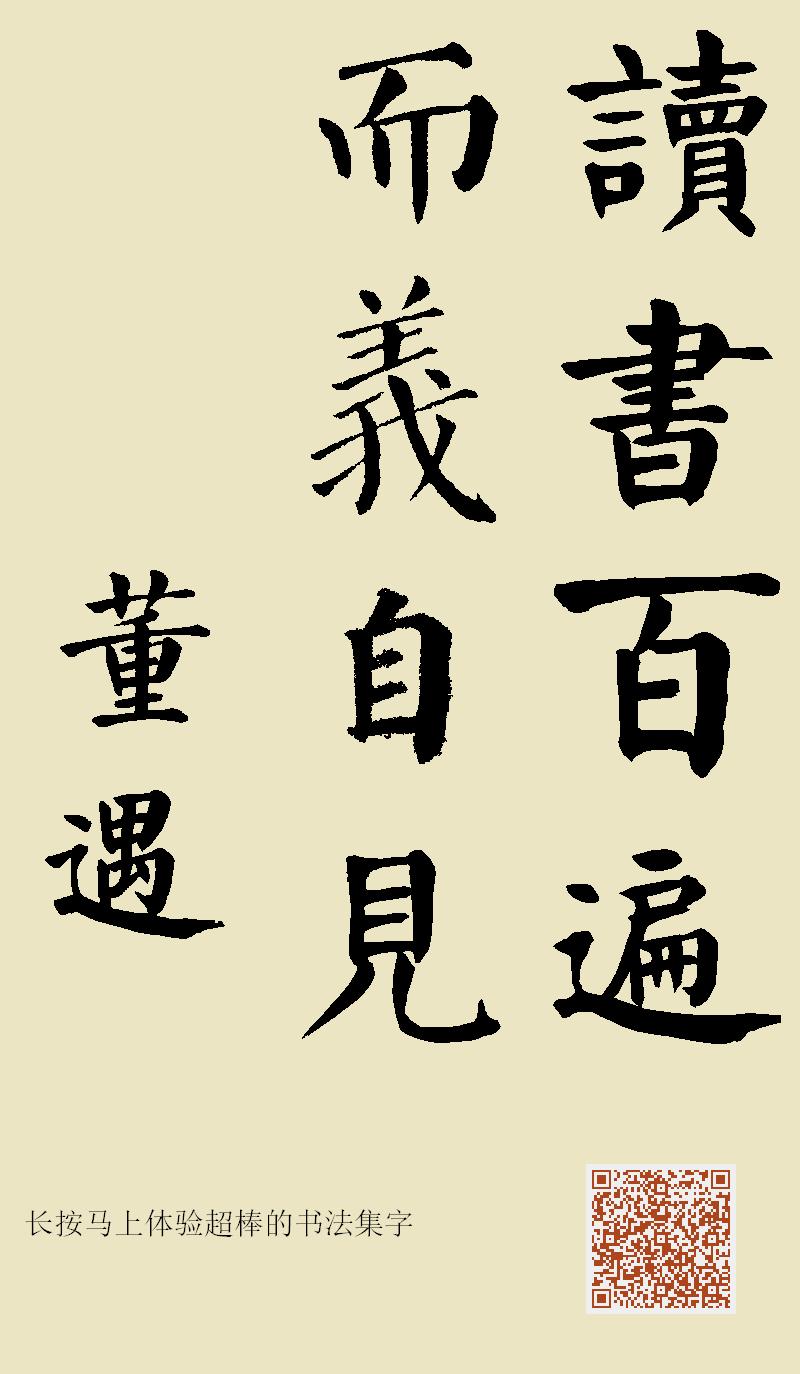 讀書百遍
而義自見
董遇
长按马上体验超棒的书法集字